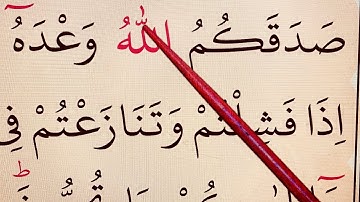 صَدَقَكُمُ اللّٰهُ وَعْدَهٗ
اِذَا فَشِلْتُمْ وَتَنَازَعْتُمْ فِى